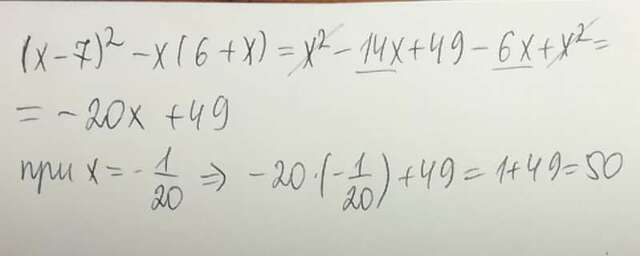 (x-7)² - x(6+x) = x² - 14x + 49 - 6x + x² =
= -20x + 49
при x = -1/20 ⇒ -20·(-1/20) + 49 = 1 + 49 = 50